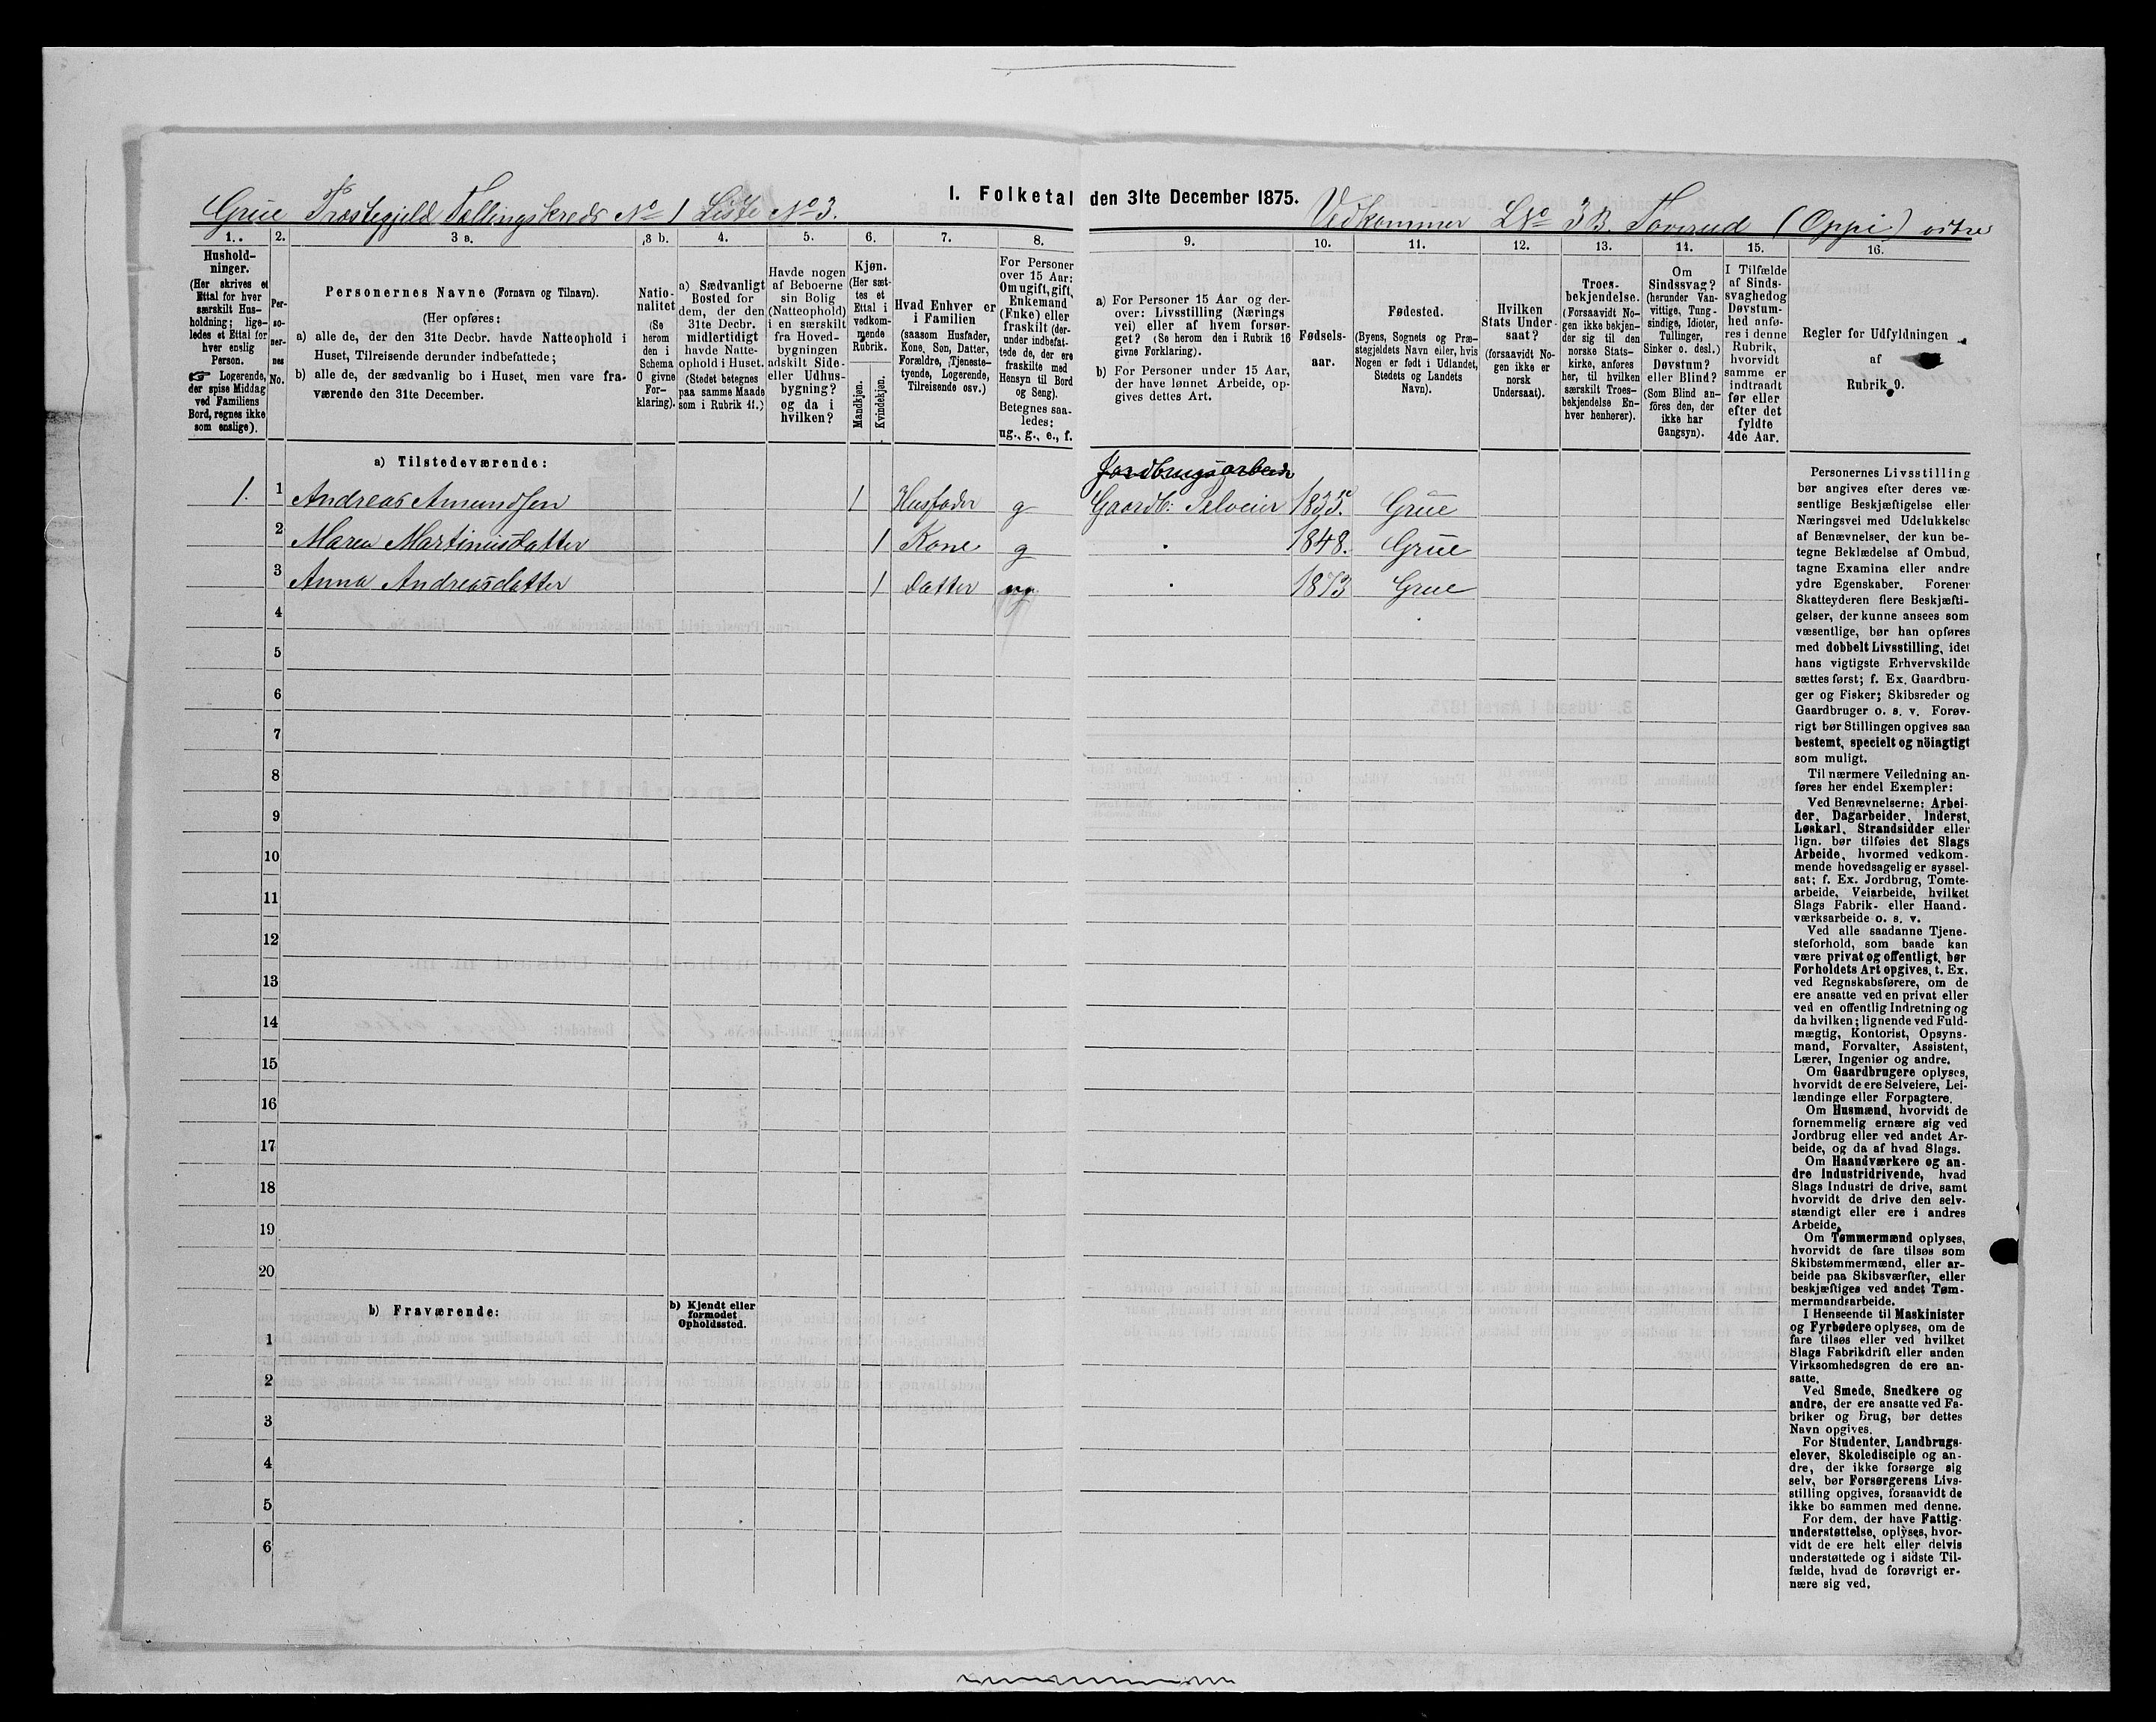 I. Folketal den 31te December 1875.
Grue Præstegjeld Tællingskreds No 1 Liste No 3.
Vedkommer LNo 3 B. Toverud (Oppi) vstre
1.
2.
3 a.
3 b.
4.
5.
6.
7.
8.
9.
10.
11.
12.
13.
14.
15.
16.
Hushold-
ninger.
(Her skrives et
Ettal for hver
særskilt Hus-
holdning; lige-
ledes et Ettal for
hver enslig
Person.
☞ Logerende,
der spise Middag
ved Familiens
Bord, regnes ikke
som enslige).
Per-
so-
ner-
nes
No.
Personernes Navne (Fornavn og Tilnavn).
(Her opføres:
a) alle de, der den 31te Decbr. havde Natteophold i
Huset, Tilreisende derunder indbefattede;
b) alle de, der sædvanlig bo i Huset, men vare fra-
værende den 31te December.
Natio-
nalitet
(Se
herom
den i
Schema
O givne
For-
klaring).
a) Sædvanligt
Bosted for
dem, der den
31te Decbr.
midlertidigt
havde Natte-
ophold i Huset.
(Stedet betegnes
paa samme Maade
som i Rubrik 11.)
Havde nogen
af Beboerne
sin Bolig
(Natteophold)
i en særskilt
fra Hoved-
bygningen
adskilt Side-
eller Udhus-
bygning?
og da i
hvilken?
Kjøn.
(Her sæt-
tes et
Ettal i
vedkom-
mende
Rubrik.
Mandkjøn.
Kvindekjøn.
Hvad Enhver er
i Familien
(saasom Husfader,
Kone, Søn, Datter,
Forældre, Tjeneste-
tyende, Logerende,
Tilreisende osv.)
For Personer
over 15 Aar:
Om ugift, gift,
Enkemand
(Enke) eller
fraskilt (der-
under indbefat-
tede de, der ere
fraskilte med
Hensyn til Bord
og Seng).
Betegnes saa-
ledes:
ug., g., e., f.
a) For Personer 15 Aar og der-
over: Livsstilling (Nærings
vei) eller af hvem forsør-
get? (Se herom den i Rubrik 16
givne Forklaring).
b) For Personer under 15 Aar,
der have lønnet Arbeide, op-
gives dettes Art.
Fødsels-
aar.
Fødested.
(Byens, Sognets og Præ-
stegjeldets Navn eller, hvis
Nogen er født i Udlandet,
Stedets og Landets
Navn).
Hvilken
Stats Under-
saat?
(forsaavidt No-
gen ikke er
norsk
Undersaat).
Troes-
bekjendelse.
(Forsaavidt No-
gen ikke bekjen-
der sig til den
norske Stats-
kirke, anføres
her, til hvilken
særskilt Troes-
bekjendelse En-
hver henhører).
Om
Sindssvag?
(herunder Van-
vittige, Tung-
sindige, Idioter,
Tullinger,
Sinker o. desl.)
Døvstum?
eller Blind?
(Som Blind an-
föres den, der
ikke har
Gangsyn).
I Tilfælde
af Sinds-
svaghedog
Døvstum-
hed anfø-
res i denne
Rubrik,
hvorvidt
samme er
indtraadt
før eller
efter det
fyldte
4de Aar.
Regler for Udfyldningen
af
Rubrik 9.
a) Tilstedeværende:
Jordbrugsarbeide
1. 1 Andreas Amundsen 1 Husfader g Gaardb: Selveier 1835. Grue
2 Maren Martinusdatter 1 Kone g " 1848. Grue
3 Anna Andreasdatter 1 Datter ug " 1873 Grue
4
5
6
7
8
9
10
11
12
13
14
15
16
17
18
19
20
b) Fraværende:
b) Kjendt eller
formodet
Opholdssted.
1
2
3
4
5
6
Personernes Livsstilling
bør angives efter deres væ-
sentlige Beskjæftigelse eller
Næringsvei med Udelukkelse
af Benævnelser, der kun be-
tegne Beklædelse af Ombud,
tagne Examina eller andre
ydre Egenskaber. Forener
Skatteyderen flere Beskjæfti-
gelser, der kunne ansees som
væsentlige, bør han opføres
med dobbelt Livsstilling, idet
hans vigtigste Erhvervskilde
sættes først; f. Ex. Gaardbru-
ger og Fisker; Skibsreder og
Gaardbruger o. s. v. Forøv-
rigt bør Stillingen opgives saa
bestemt, specielt og nöiagtigt
som muligt.
Til nærmere Veiledning an-
føres her endel Exempler:
Ved Benævnelserne: Arbei-
der, Dagarbeider, Inderst,
Løskarl, Strandsidder eller
lign. bør tilføies det Slags
Arbeide, hvormed vedkom-
mende hovedsagelig er syssel-
sat; f. Ex. Jordbrug, Tomte-
arbeide, Veiarbeide, hvilket
Slags Fabrik- eller Haand-
værksarbeide o. s. v.
Ved alle saadanne Tjene-
steforhold, som baade kan
være privat og offentligt, bør
Forholdets Art opgives, t. Ex.
ved Regnskabsførere, om de
ere ansatte ved en privat eller
ved en offentlig Indretning og
da hvilken; lignende ved Fuld-
mægtig, Kontorist, Opsyns-
mand, Forvalter, Assistent,
Lærer, Ingeniør og andre.
Om Gaardbrugere oplyses,
hvorvidt de ere Selveiere, Lei-
lændinge eller Forpagtere.
Om Husmænd, hvorvidt de
fornemmelig ernære sig ved
Jordbrug eller ved andet Ar-
beide, og da af hvad Slags.
Om Haandværkere og an-
dre Industridrivende, hvad
Slags Industri de drive, samt
hvorvidt de drive den selv-
stændigt eller ere i andres
Arbeide.
Om Tømmermænd oplyses,
hvorvidt de fare tilsøs som
Skibstømmermænd, eller ar-
beide paa Skibsværfter, eller
beskjæftiges ved andet Tøm-
mermandsarbeide.
I Henseende til Maskinister
og Fyrbødere oplyses, om de
fare tilsøs eller ved hvilket
Slags Fabrikdrift eller anden
Virksomhedsgren de ere an-
satte.
Ved Smede, Snedkere og
andre, der ere ansatte ved Fa-
briker og Brug, bør dettes
Navn opgives.
For Studenter, Landbrugs-
elever, Skoledisciple og an-
dre, der ikke forsørge sig
selv, bør Forsørgerens Livs-
stilling opgives, forsaavidt de
ikke bo sammen med denne.
For dem, der have Fattig-
understøttelse, oplyses, hvor-
vidt de ere helt eller delvis
understøttede og i sidste Til-
fælde, hvad de forøvrigt er-
nære sig ved.